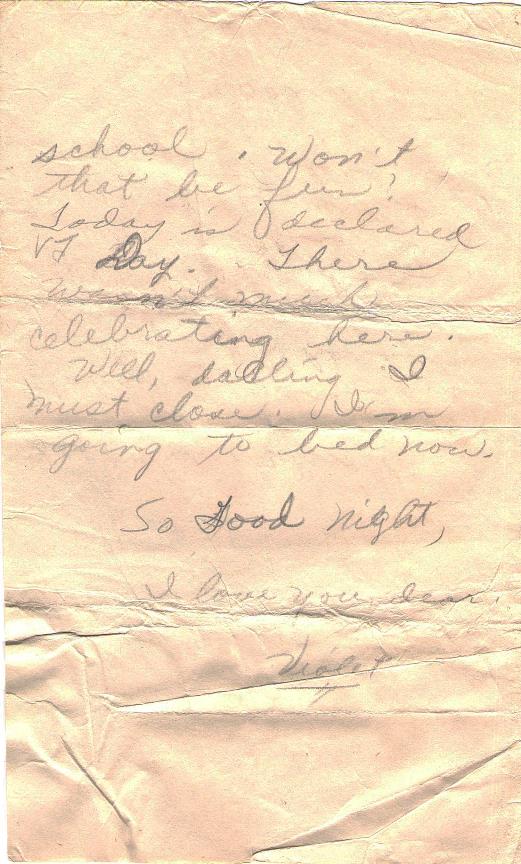 school. Won't
that be fun?
Today is declared
VJ Day. There
wasn't much
celebrating here.
Well, darling I
must close. I'm
going to bed now.
So Good night,
I love you dear.
Violet